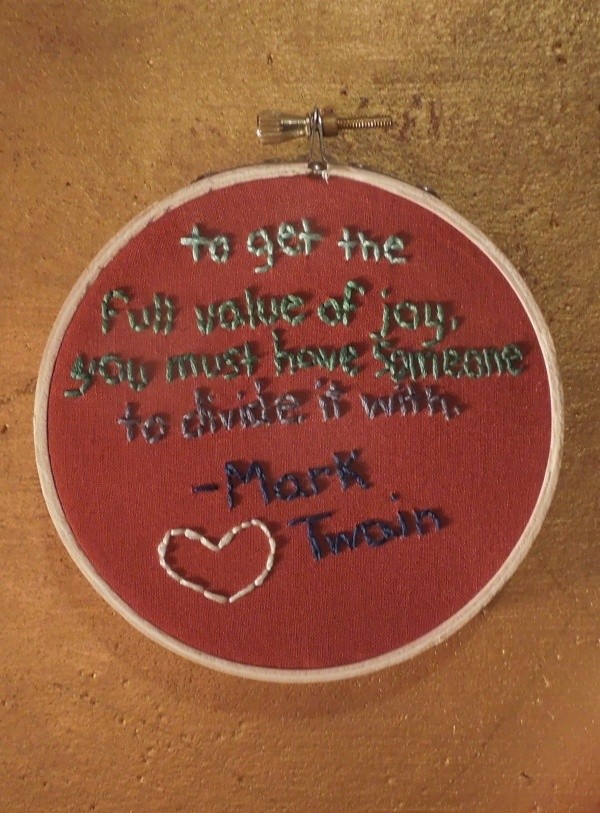 to get the
Full value of joy,
you must have Someone
to divide it with.
-Mark
Twain